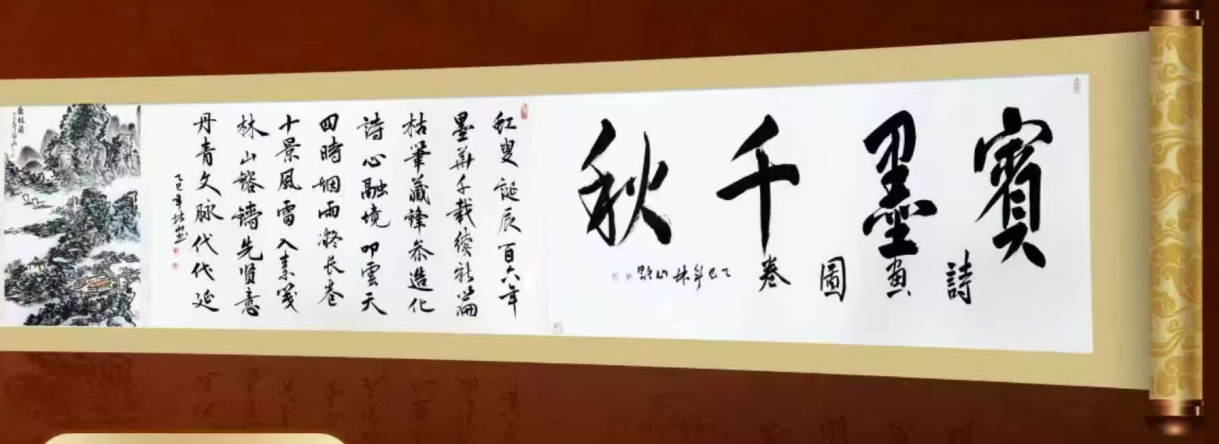 賓墨千秋
詩畫圖卷
乙巳年林山題
虹叟誕辰百六年
墨華千載續新篇
枯筆藏鋒参造化
詩心融境叩雲天
四時烟雨凝長卷
十景風雷入素箋
林山鎔鑄先賢意
丹青文脉代代延
乙巳年林山